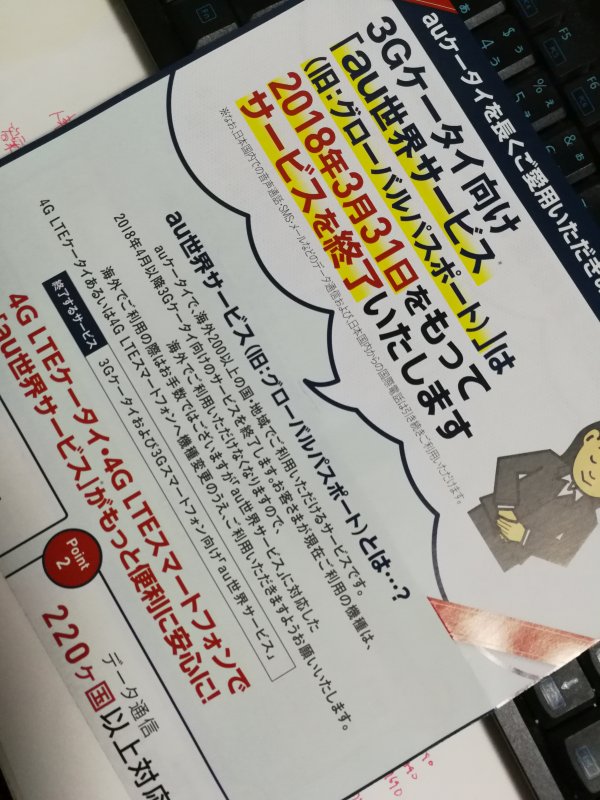 auケータイを長くご愛用いただき
3Gケータイ向け
「au世界サービス
(旧:グローバルパスポート)」は
2018年3月31日をもって
サービスを終了いたします
※なお、日本国内での音声通話・SMS・メールなどのデータ通信および、日本国内からの国際電話は引き続きご利用いただけます。
au世界サービス(旧:グローバルパスポート)とは…?
auケータイで、海外200以上の国・地域でご利用いただけるサービスです。
2018年4月以降3Gケータイ向けのサービスを終了します。お客さまが現在ご利用の機種は、
海外でご利用いただけなくなりますので、
海外でご利用の際はお手数ではございますが「au世界サービス」に対応した
4G LTEケータイあるいは4G LTEスマートフォンへ機種変更のうえ、ご利用いただきますようお願いいたします。
終了するサービス
3Gケータイおよび3Gスマートフォン向け「au世界サービス」
4G LTEケータイ・4G LTEスマートフォンで
「au世界サービス」がもっと便利に安心に!
Point
2
データ通信
220ヶ国以上対応
F5
F6